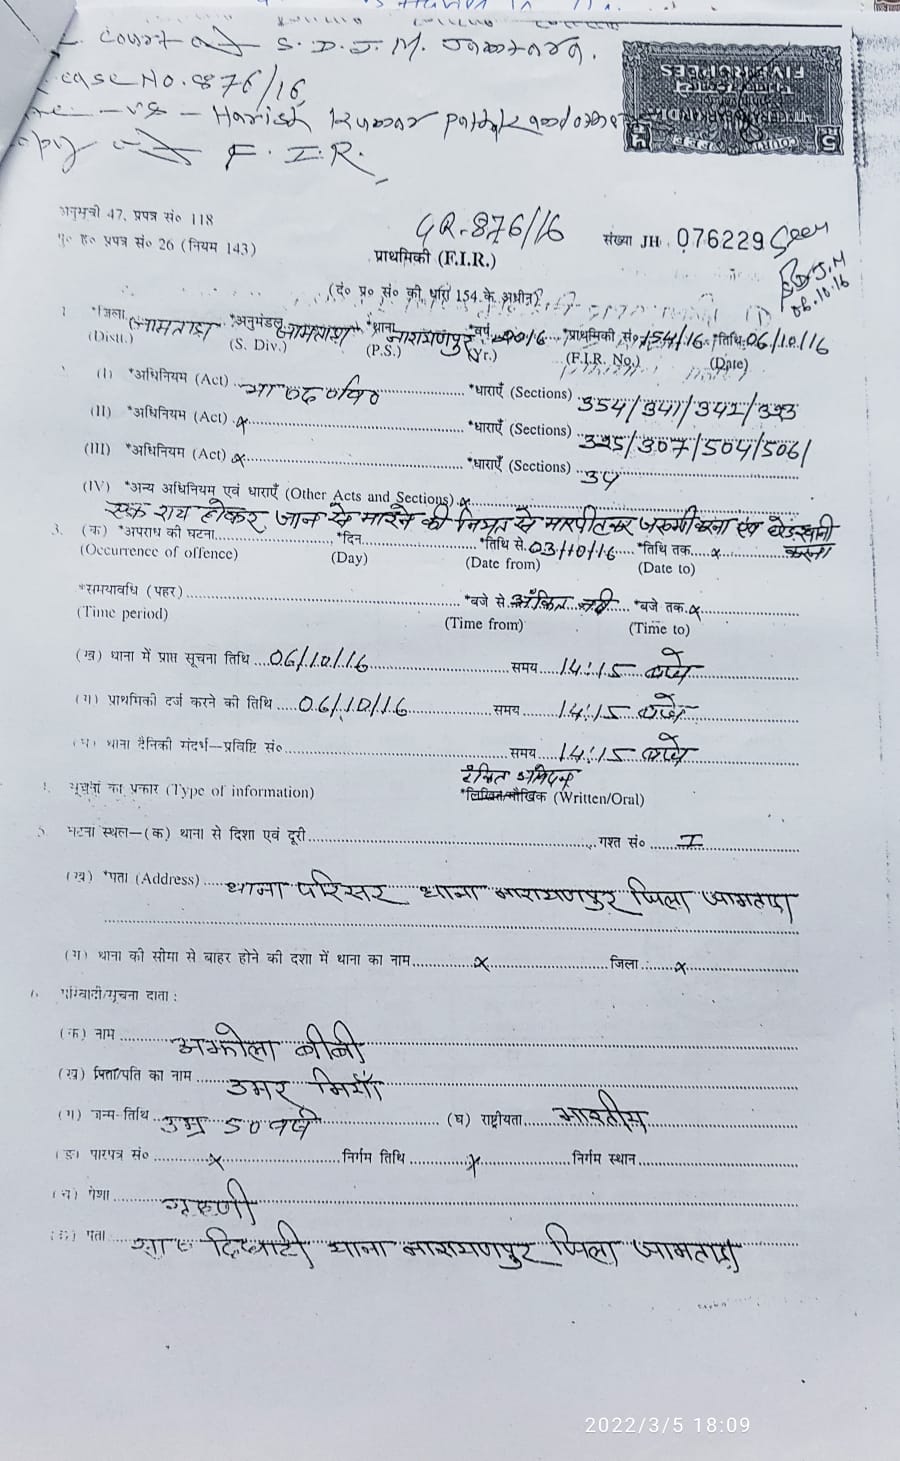 court of S.D.J.M. Jamtara.
case No. 876/16
vs - Harish Kumar pathak and others
copy of F.I.R.
FIVE RUPEES
COURT FEE
अनुसूची 47, प्रपत्र सं० 118
GR-876/16
संख्या JH 076229 Seen
प्रपत्र सं० 26 (नियम 143)
प्राथमिकी (F.I.R.)
S.D.J.M
06.10.16
(दं० प्र० सं० की धारा 154 के अधीन)
1. *जिला जामताड़ा *अनुमंडल जामताड़ा *थाना नारायणपुर *वर्ष 2016 *प्राथमिकी सं० 154/16 *तिथि 06/10/16
(Distt.) (S. Div.) (P.S.) (Yr.) (F.I.R. No.) (Date)
(I) *अधिनियम (Act) भा०द०वि० *धाराएँ (Sections) 354/341/342/323
(II) *अधिनियम (Act) x *धाराएँ (Sections) 325/307/504/506/
(III) *अधिनियम (Act) x *धाराएँ (Sections) 34
(IV) *अन्य अधिनियम एवं धाराएँ (Other Acts and Sections) x
एक राय होकर जान से मारने की नियत से मारपीट कर जख्मी करना एवं छेड़खानी करना
3. (क) *अपराध की घटना *दिन *तिथि से 03/10/16 *तिथि तक x
(Occurrence of offence) (Day) (Date from) (Date to)
*समयावधि (पहर) *बजे से अंकित नहीं *बजे तक x
(Time period) (Time from) (Time to)
(ख) थाना में प्राप्त सूचना तिथि 06/10/16 समय 14:15 बजे
(ग) प्राथमिकी दर्ज करने की तिथि 06/10/16 समय 14:15 बजे
(घ) थाना दैनिकी संदर्भ—प्रविष्टि सं० समय 14:15 बजे
सूचना का प्रकार (Type of information) *लिखित/मौखिक (Written/Oral)
5. घटना स्थल—(क) थाना से दिशा एवं दूरी गश्त सं० I
(ख) *पता (Address) थाना परिसर थाना नारायणपुर जिला जामताड़ा
(ग) थाना की सीमा से बाहर होने की दशा में थाना का नाम x जिला x
6. परिवादी/सूचना दाता :
(क) नाम अझोला बीबी
(ख) पिता/पति का नाम उमर मियाँ
(ग) जन्म-तिथि उम्र 50 वर्ष (घ) राष्ट्रीयता भारतीय
(ङ) पारपत्र सं० x निर्गम तिथि x निर्गम स्थान
(च) पेशा गृहणी
(छ) पता सा० दिघारी थाना नारायणपुर जिला जामताड़ा
2022/3/5 18:09